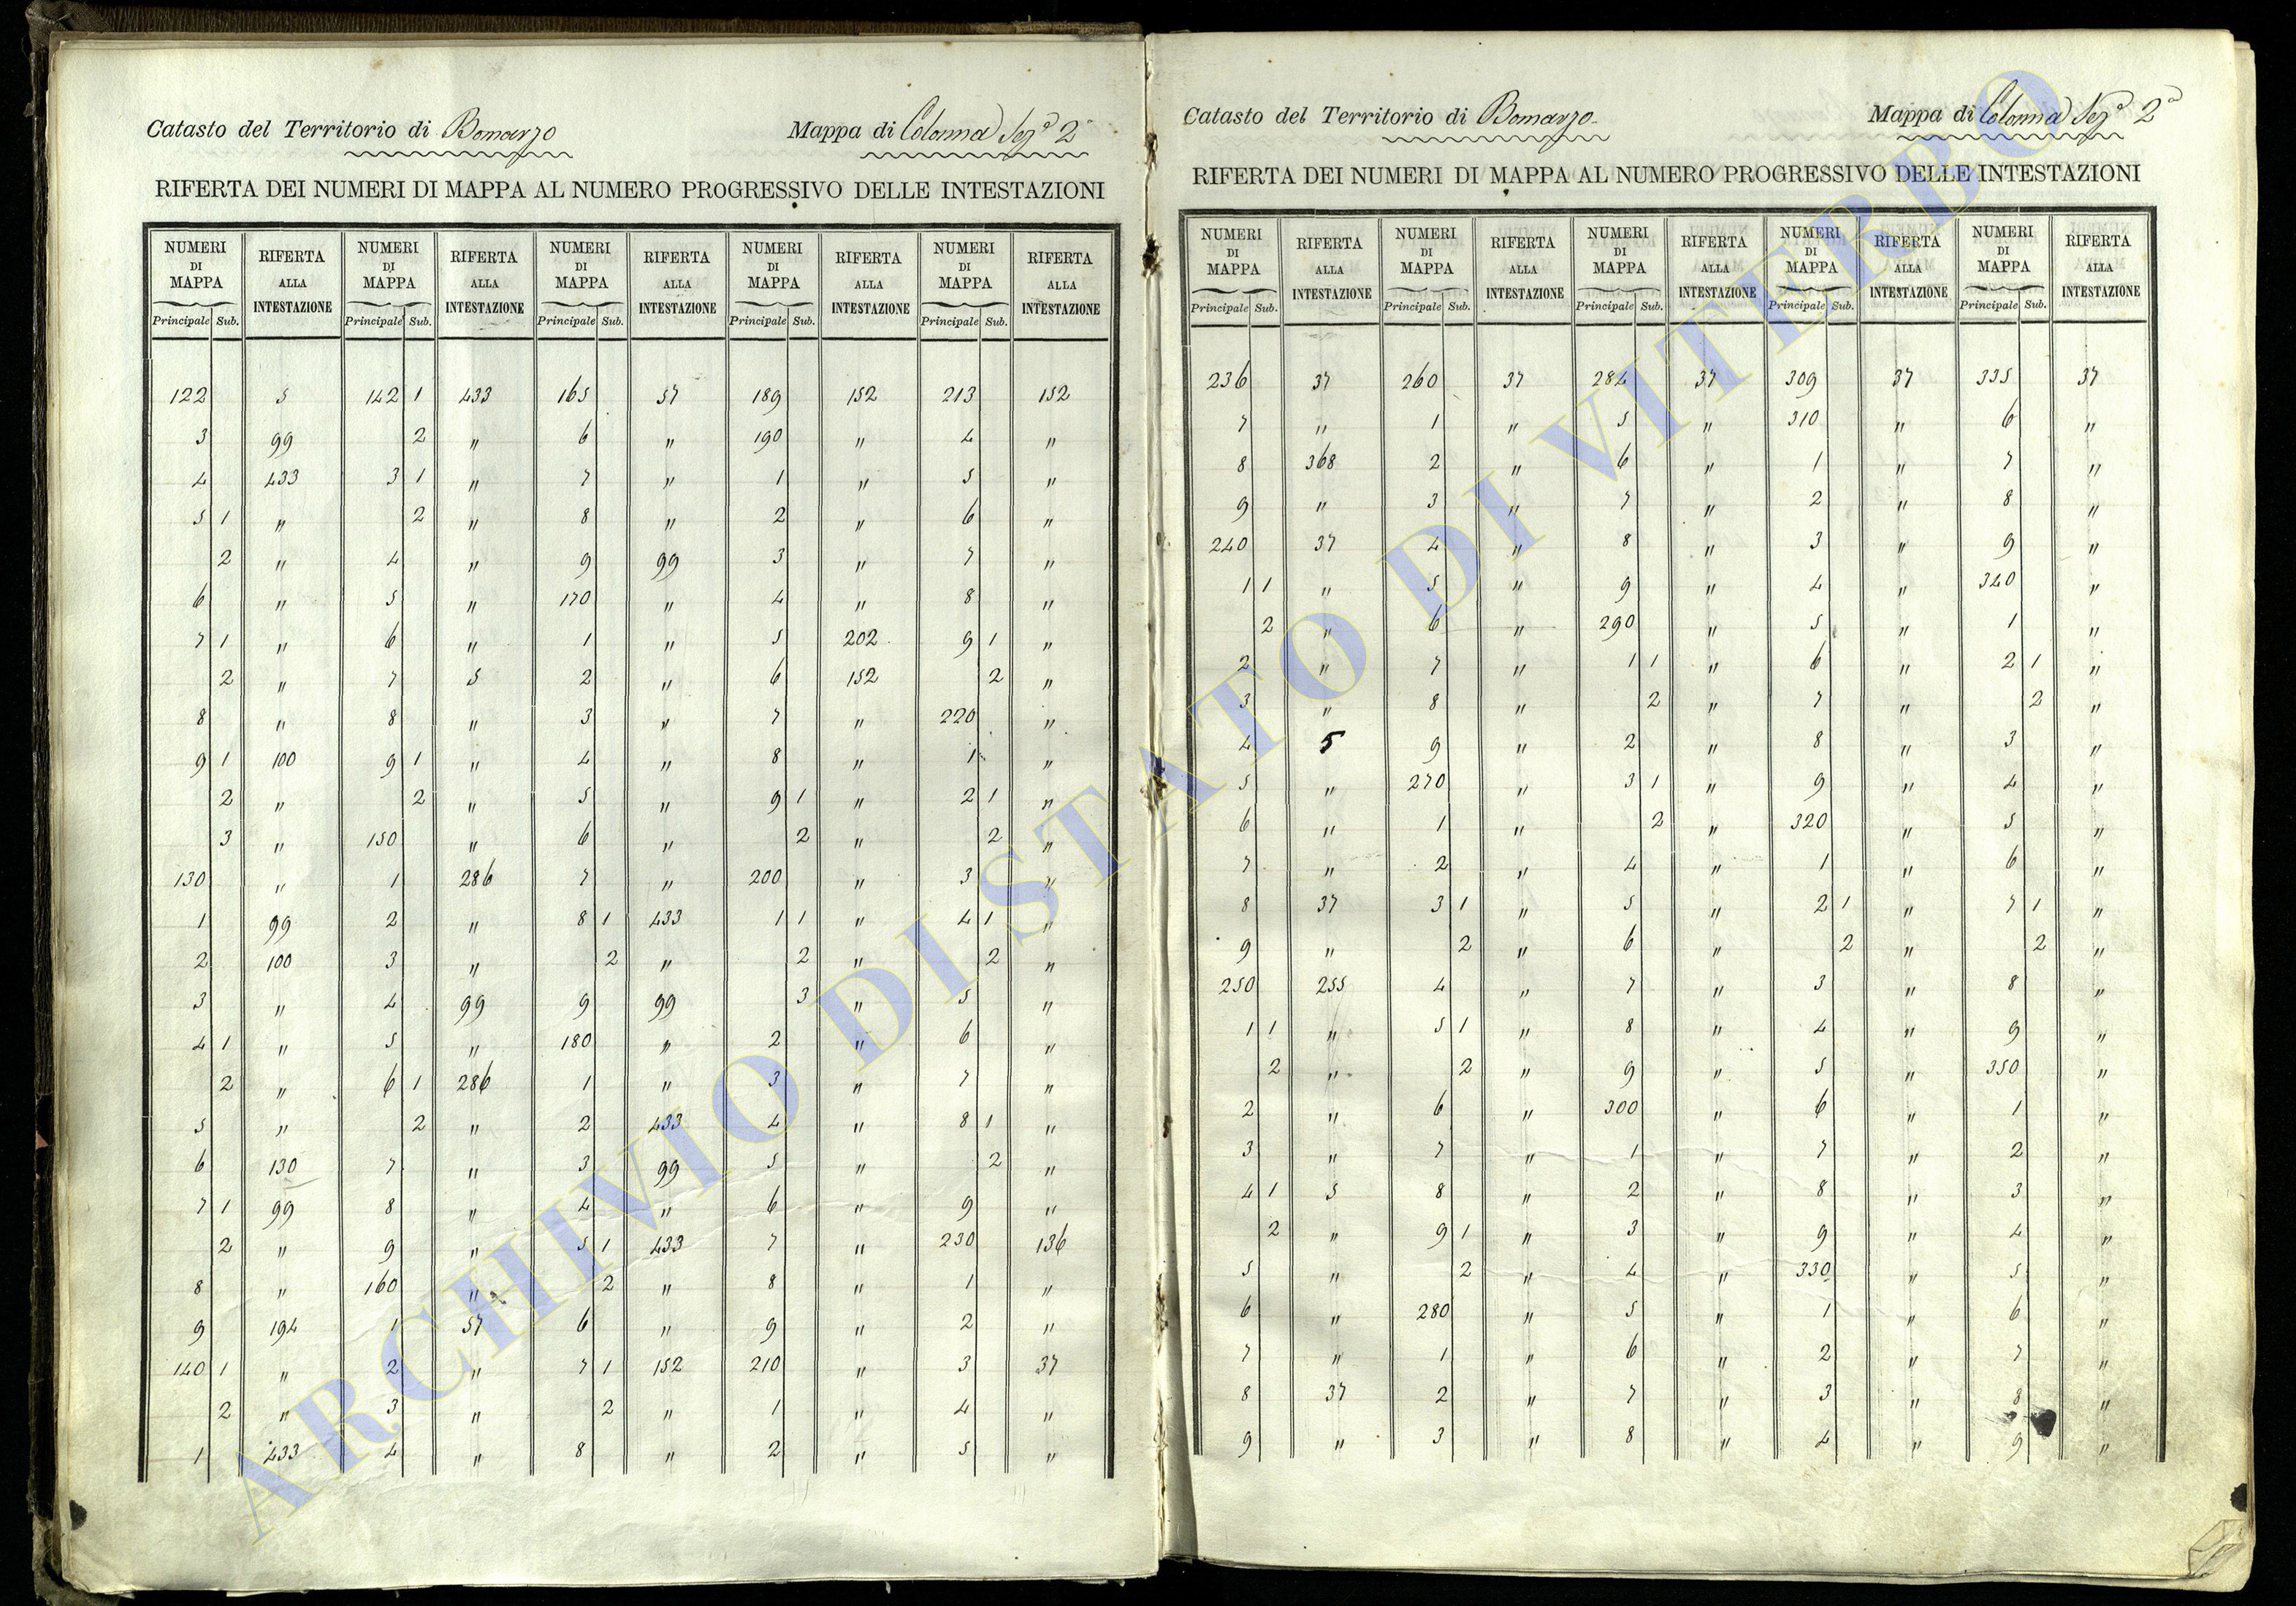 Catasto del Territorio di Bomarzo Mappa di Colonna Sezª 2ª
RIFERTA DEI NUMERI DI MAPPA AL NUMERO PROGRESSIVO DELLE INTESTAZIONI
NUMERI DI MAPPA RIFERTA ALLA INTESTAZIONE NUMERI DI MAPPA RIFERTA ALLA INTESTAZIONE NUMERI DI MAPPA RIFERTA ALLA INTESTAZIONE NUMERI DI MAPPA RIFERTA ALLA INTESTAZIONE NUMERI DI MAPPA RIFERTA ALLA INTESTAZIONE
Principale Sub. Principale Sub. Principale Sub. Principale Sub. Principale Sub.
122 5 142 1 433 165 57 189 152 213 152
3 99 2 " 6 " 190 " 4 "
4 433 3 1 " 7 " 1 " 5 "
5 1 " 2 " 8 " 2 " 6 "
2 " 4 " 9 99 3 " 7 "
6 " 5 " 170 " 4 " 8 "
7 1 " 6 " 1 " 5 202 9 1 "
2 " 7 5 2 " 6 152 2 "
8 " 8 " 3 " 7 " 220 "
9 1 100 9 1 " 4 " 8 " 1 "
2 " 2 " 5 " 9 1 " 2 1 "
3 " 150 " 6 " 2 " 2 "
130 " 1 286 7 " 200 " 3 "
1 99 2 " 8 1 433 1 1 " 4 1 "
2 100 3 " 2 " 2 " 2 "
3 " 4 99 9 99 3 " 5 "
4 1 " 5 " 180 " 2 " 6 "
2 " 6 1 286 1 " 3 " 7 "
5 " 2 " 2 433 4 " 8 1 "
6 130 7 " 3 99 5 " 2 "
7 1 99 8 " 4 " 6 " 9 "
2 " 9 " 5 1 433 7 " 230 136
8 " 160 " 2 " 8 " 1 "
9 194 1 57 6 " 9 " 2 "
140 1 " 2 " 7 1 152 210 " 3 37
2 " 3 " 2 " 1 " 4 "
1 433 4 " 8 " 2 " 5 "
Catasto del Territorio di Bomarzo Mappa di Colonna Sezª 2ª
RIFERTA DEI NUMERI DI MAPPA AL NUMERO PROGRESSIVO DELLE INTESTAZIONI
NUMERI DI MAPPA RIFERTA ALLA INTESTAZIONE NUMERI DI MAPPA RIFERTA ALLA INTESTAZIONE NUMERI DI MAPPA RIFERTA ALLA INTESTAZIONE NUMERI DI MAPPA RIFERTA ALLA INTESTAZIONE NUMERI DI MAPPA RIFERTA ALLA INTESTAZIONE
Principale Sub. Principale Sub. Principale Sub. Principale Sub. Principale Sub.
236 37 260 37 284 37 309 37 335 37
7 " 1 " 5 " 310 " 6 "
8 368 2 " 6 " 1 " 7 "
9 " 3 " 7 " 2 " 8 "
240 37 4 " 8 " 3 " 9 "
1 1 " 5 " 9 " 4 " 340 "
2 " 6 " 290 " 5 " 1 "
2 " 7 " 1 1 " 6 " 2 1 "
3 " 8 " 2 " 7 " 2 "
4 5 9 " 2 " 8 " 3 "
5 " 270 " 3 1 " 9 " 4 "
6 " 1 " 2 " 320 " 5 "
7 " 2 " 4 " 1 " 6 "
8 37 3 1 " 5 " 2 1 " 7 1 "
9 " 2 " 6 " 2 " 2 "
250 255 4 " 7 " 3 " 8 "
1 1 " 5 1 " 8 " 4 " 9 "
2 " 2 " 9 " 5 " 350 "
2 " 6 " 300 " 6 " 1 "
3 " 7 " 1 " 7 " 2 "
4 1 5 8 " 2 " 8 " 3 "
2 " 9 1 " 3 " 9 " 4 "
5 " 2 " 4 " 330 " 5 "
6 " 280 " 5 " 1 " 6 "
7 " 1 " 6 " 2 " 7 "
8 37 2 " 7 " 3 " 8 "
9 " 3 " 8 " 4 " 9 "
ARCHIVIO DI STATO DI VITERBO